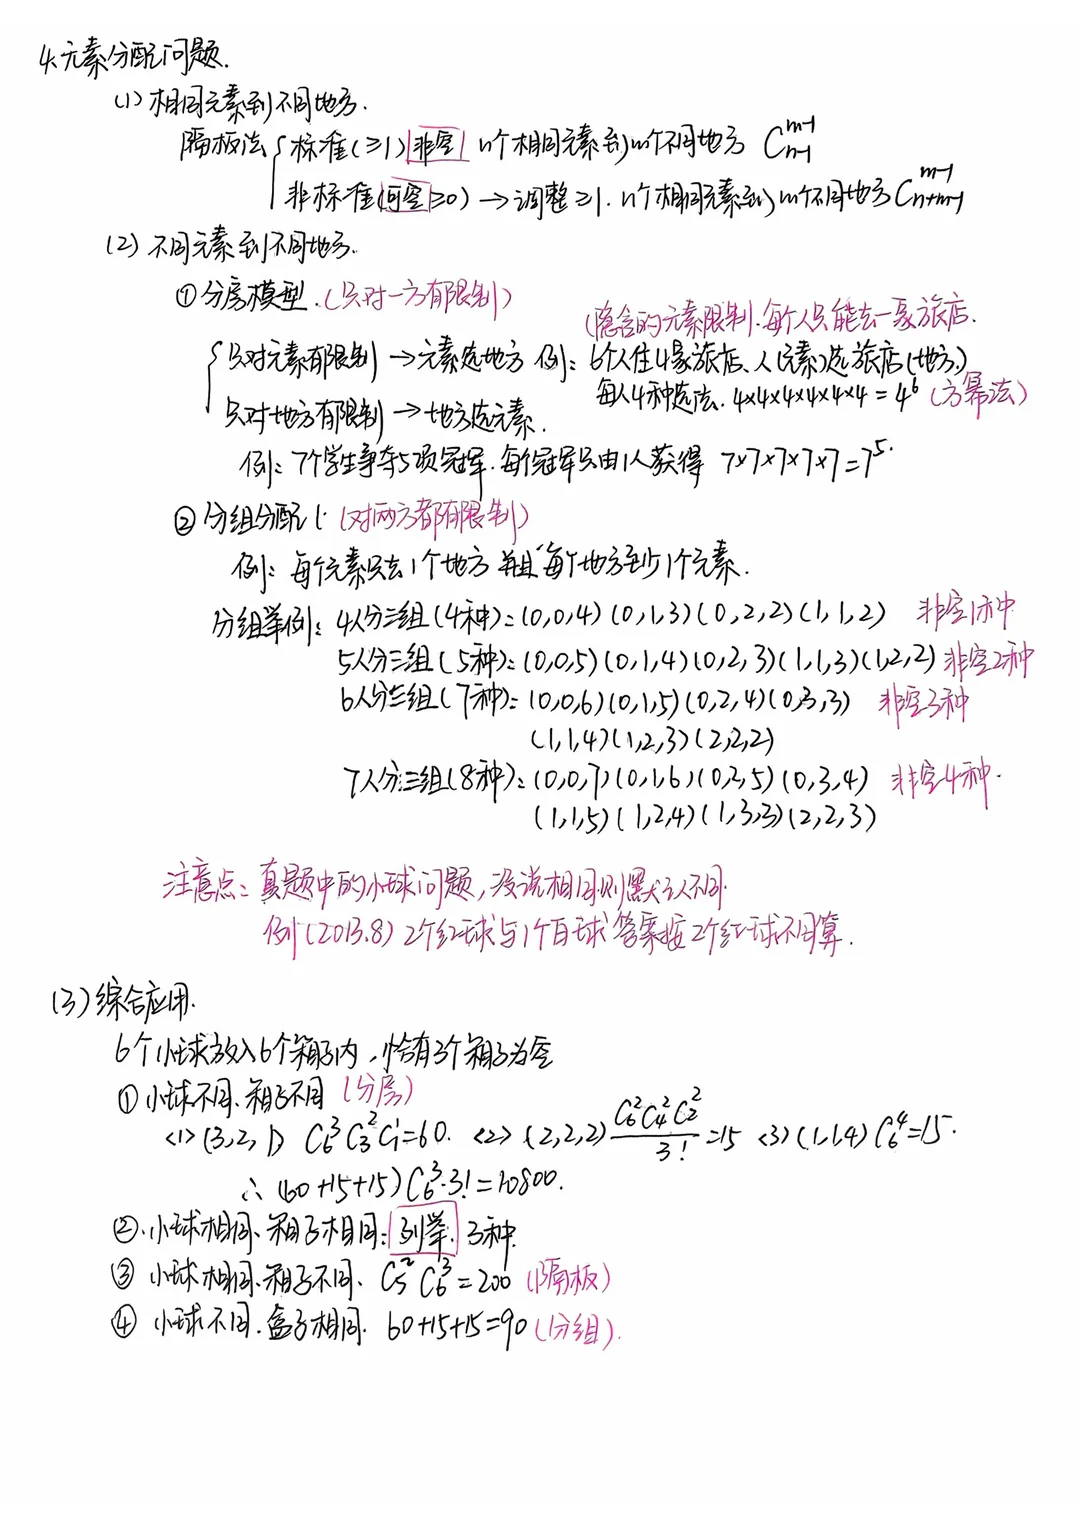 4.元素分配问题.
(1) 相同元素到不同地方.
隔板法 { 标准(≥1) 非空 n个相同元素到m个不同地方 C_{n-1}^{m-1}
非标准(可空≥0) → 调整≥1. n个相同元素到m个不同地方 C_{n+m-1}^{m-1}
(2) 不同元素到不同地方.
① 分房模型. (只对一方有限制)
(隐含的元素限制.每个人只能去一家旅店.
{ 只对元素有限制 → 元素选地方 例: 6个人住4家旅店、人(元素)选旅店(地方.)
每人4种选法. 4×4×4×4×4×4=4^6 (方幂法)
只对地方有限制 → 地方选元素.
例: 7个学生争夺5项冠军.每个冠军只由1人获得 7×7×7×7×7=7^5.
② 分组分配 (对两方都有限制)
例: 每个元素只去1个地方 并且 每个地方至少1个元素.
分组举例: 4人分三组(4种): (0,0,4) (0,1,3) (0,2,2) (1,1,2) 非空1种
5人分三组(5种): (0,0,5) (0,1,4) (0,2,3) (1,1,3) (1,2,2) 非空2种
6人分三组(7种): (0,0,6) (0,1,5) (0,2,4) (0,3,3) 非空3种
(1,1,4) (1,2,3) (2,2,2)
7人分三组(8种): (0,0,7) (0,1,6) (0,2,5) (0,3,4) 非空4种.
(1,1,5) (1,2,4) (1,3,3) (2,2,3)
注意点: 真题中的小球问题,没说相同则默认不同.
例(2013.8) 2个红球与1个白球 答案按2个红球不同算.
(3) 综合应用.
6个小球放入6个箱子内,恰有3个箱子为空
① 小球不同.箱子不同 (分房)
<1> (3,2,1) C_6^3 C_3^2 C_1^1=60. <2> (2,2,2) \frac{C_6^2 C_4^2 C_2^2}{3!}=15 <3) (1,1,4) C_6^4=15.
∴ (60+15+15) C_6^3·3!=10800.
②.小球相同、箱子相同: 列举. 3种.
③ 小球相同.箱子不同. C_5^2 C_6^3=200 (隔板)
④ 小球不同.盒子相同. 60+15+15=90 (分组).